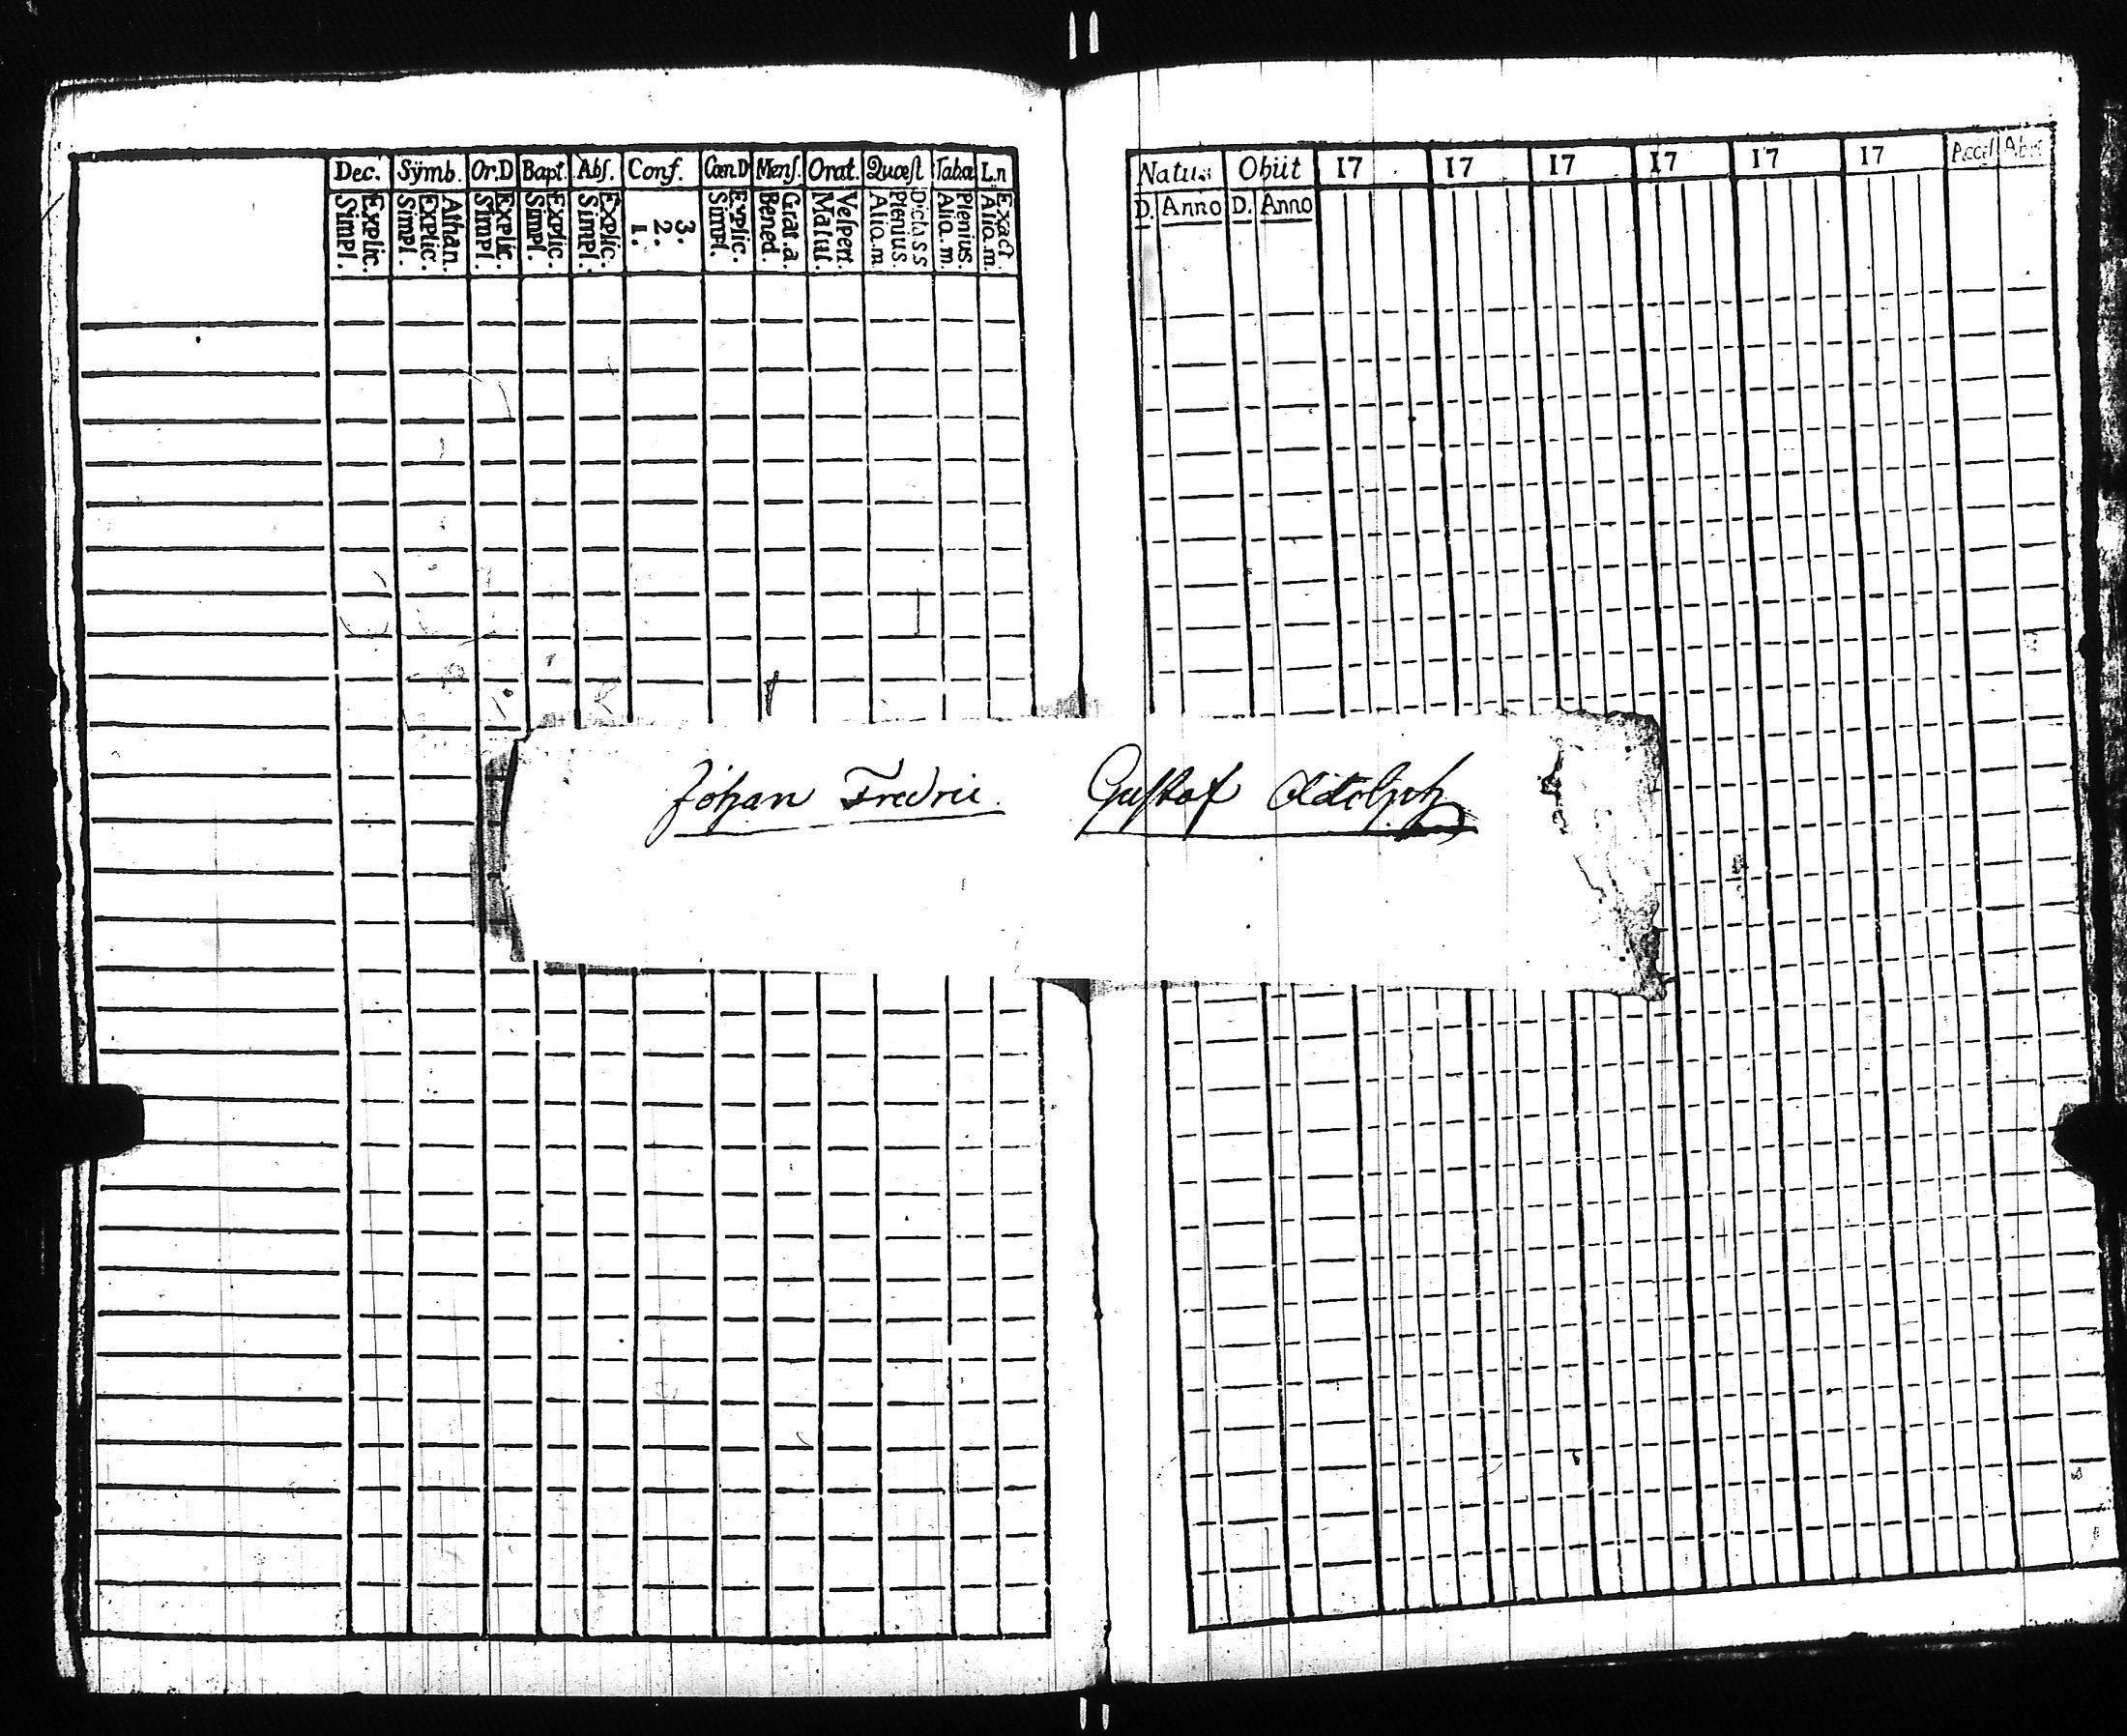 Dec. Sÿmb. Or.D Bapt. Abſ. Conf. Cœn.D Menſ. Orat. Quœſt Taba L.n
Simpl. Explic. Simpl. Explic. Athan. Simpl. Explic. Simpl. Explic. Simpl. Explic. 1. 2. 3. Simpl. Explic. Bened. Grat.a. Matut. Veſpert. Aliq.m Plenius. Dict.s s Aliq.m. Plenius. Aliq.m. Exact.
Natus Obiit 17 17 17 17 17 17 Accell Abut
D. Anno D. Anno
Johan Fredric Gustaf Adolph